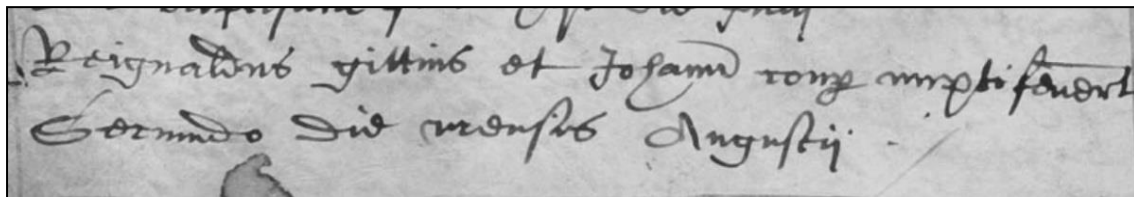 Reignaldus gittins et Johann coup nupti fuert
Secundo die mensis Augustii